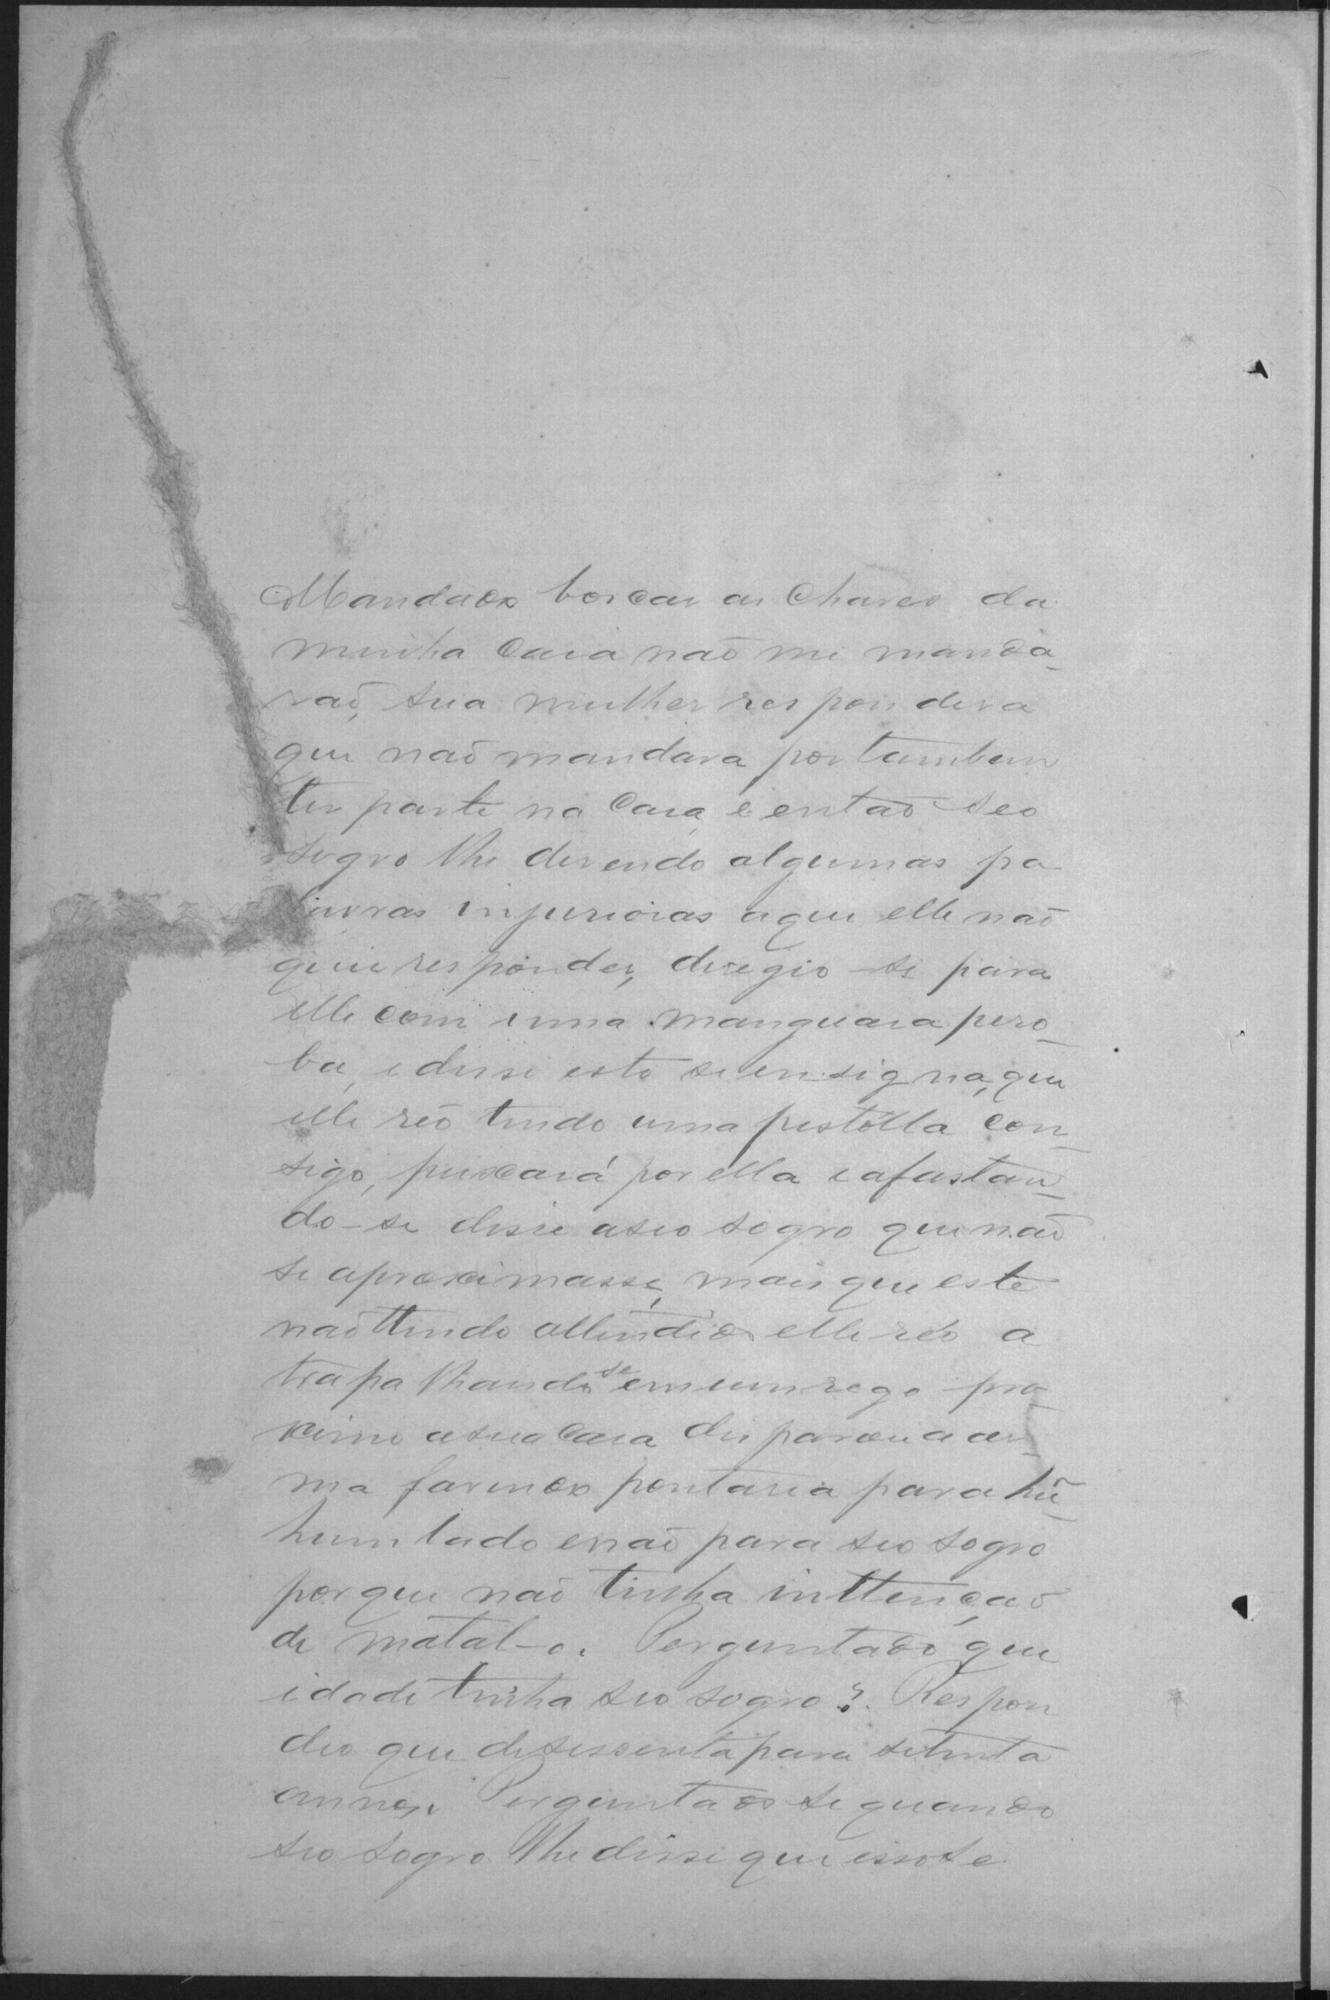 Mandado boscar as chaves da
minha casa não me manda-
rão, sua mulher respondera
que não mandava por tambem
ter parte na casa, e então seo
sogro lhe dizendo algumas pa
lavras injuriosas a que elle não
quis responder, deregio-se para
elle com uma manguara pero-
ba, e disse esto se ensigna, que
elle réo tendo uma pistolla con-
sigo, puxará por ella e afastan-
do-se disse a seo sogro que não
se aproximasse, mais que este
não ttendo attendido elle réo a
trapalhando se em um rego pro-
ximo a sua casa disparou a ar-
ma fazendo pontaria para hũ-
hum lado e não para seo sogro
porque não tinha inttenção
de matal-o. Perguntado que
idade tinha seo sogro?. Respon
deo que de sessenta para setenta
annos. Perguntado se quando
seo sogro lhe disse que isso se